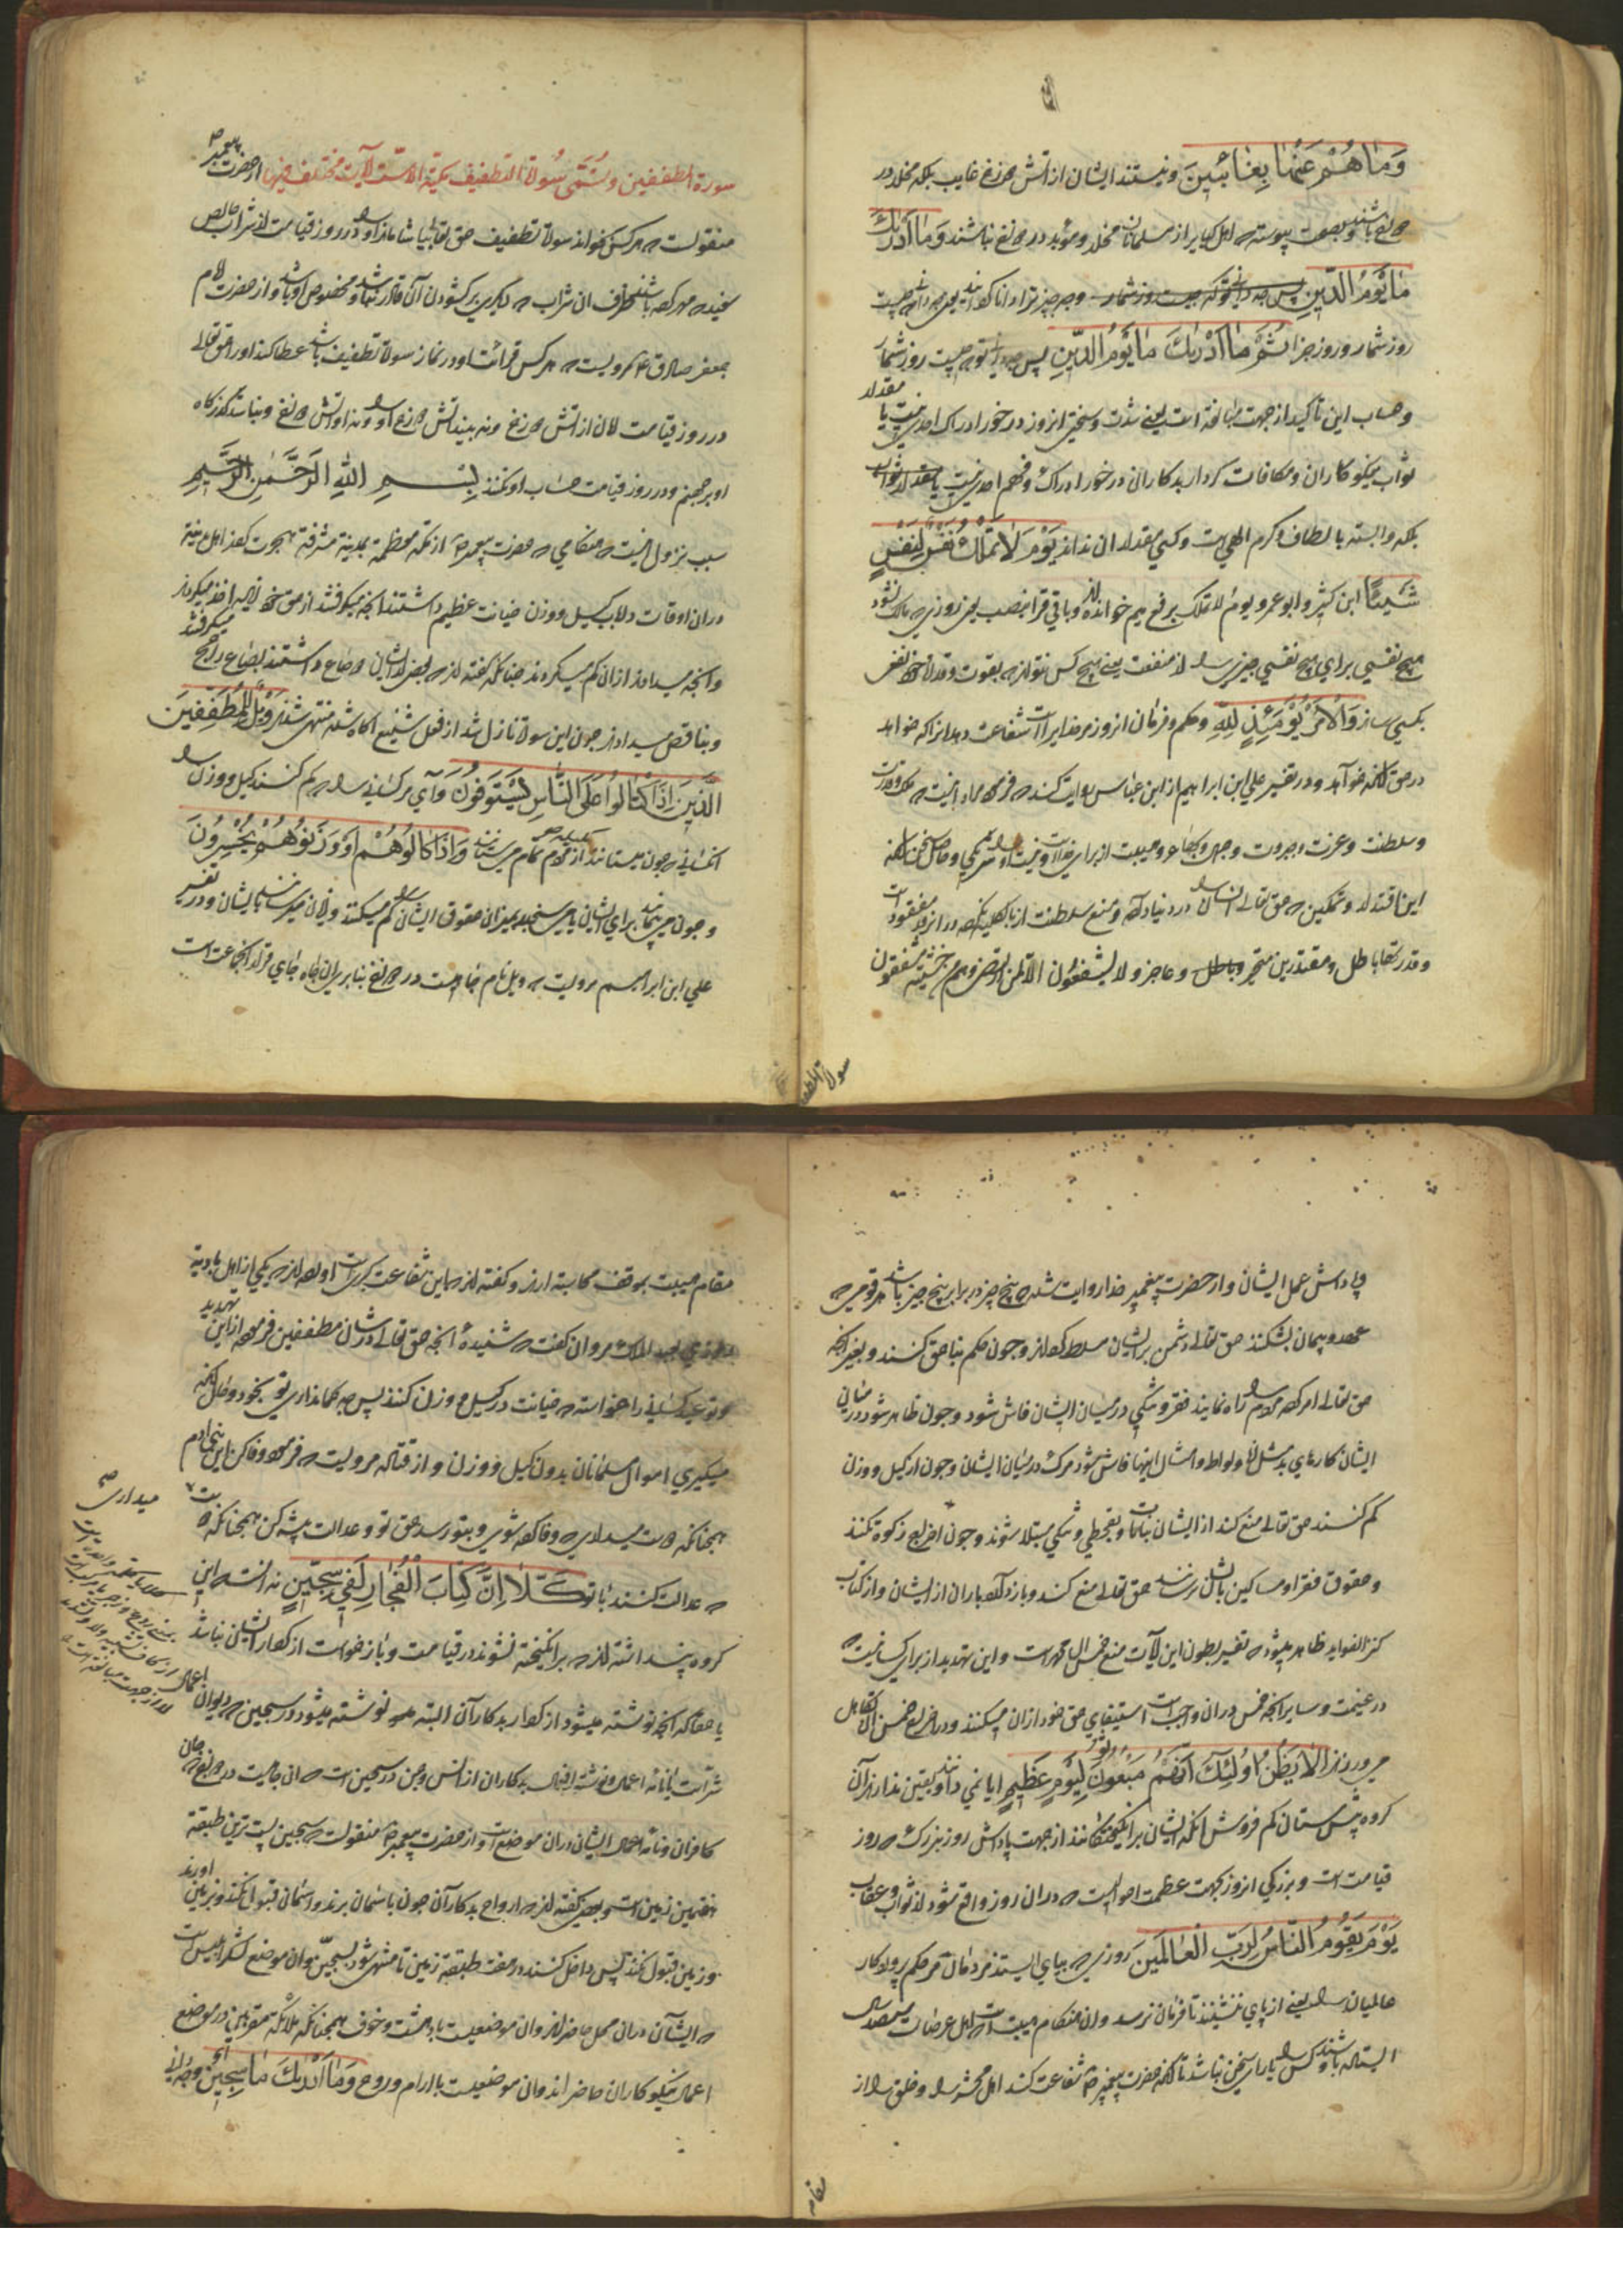 وَمَا هُمْ عَنْهَا بِغَائِبِينَ ونیستند ایشان از آتش دوزخ غایب بلکه مخلد در
دوزخ باشند وبصحت پیوسته که اهل کبایر از مسلمانان مخلد ومؤبد در دوزخ نباشند وَمَا أَدْرَيكَ
مَا يَوْمُ الدِّينِ پس چه دانی تو که چیست روز شمار وچه چیز ترا دانا کرد یعنی چه دانی چیست
روز شمار وروز جزا ثُمَّ مَا أَدْرَيكَ مَا يَوْمُ الدِّينِ پس چه دانی تو چیست روز شمار
وحساب این تاکید از جهت مبالغه است یعنی شدت وسختی انروز در خور ادراک احدی نیست یا مقدار
ثواب نیکوکاران ومکافات کردار بدکاران در خور ادراک وفهم احدی نیست یا مقدار ثواب
بلکه وابسته بالطاف وکرم الهی است وکسی مقدار ان نداند يَوْمَ لَا تَمْلِكُ نَفْسٌ لِنَفْسٍ
شَيْئًا ابن کثیر وابو عمرو یوم لا تملک برفع میم خوانده اند وباقی قرا بنصب یعنی روزی که مالک نشود
هیچ نفسی برای هیچ نفسی چیزی را از منفعت یعنی هیچ کس نتواند که بقوت وقدرت خود نفعی
بکسی رساند وَالْأَمْرُ يَوْمَئِذٍ لِلَّهِ وحکم وفرمان انروز مر خدایراست شفاعت دهد انرا که خواهد
در حق انکه خواهد ودر تفسیر علی ابن ابراهیم از ابن عباس روایت کند که فرمود مراد اینست که ملک وقدرت
وسلطنت وعزت وجبروت وجمال وبهاء وهیبت از برای خداست ونیست او را شریکی وحاصل سخن انکه
این اقتدار وتمکین که حق تعالی انسان را در دنیا داده ومنع سلطنت از او بالکلیه نکرده در انروز مفقود است
وقدرتها باطل ومقتدرین متحیر وعاجز ولا یشفعون الا لمن ارتضی وهم من خشیته مشفقون
سورة المطففین
سورة المطففین وتسمی سورة التطفیف مکیة الا ست آیات مختلف فیها از حضرت پیغمبر ص
منقولست که هر کس بخواند سورة تطفیف حق تعالی بیاشاماند او را در روز قیامت از شراب خالص
سر مهر کرده باشند ظرف ان شراب که دیگری بر کشودن آن قادر نباشد ومخصوص او باشد واز حضرت امام
جعفر صادق ع مرویست که هر کس قرائت او در نماز سورة تطفیف باشد عطا کند او را حق تعالی
در روز قیامت امان از آتش دوزخ ونه بیند آتش دوزخ او را ونه او آتش دوزخ ونباشد گذرگاه
او بر جهنم ودر روز قیامت حساب او نکنند بِسْمِ اللَّهِ الرَّحْمَنِ الرَّحِيمِ
سبب نزول اینست که هنگامی که حضرت پیغمبر ص از مکه معظمه بمدینه مشرفه هجرت کرد اهل مدینه
دران اوقات در باب کیل ووزن خیانت عظیم داشتند انچه میگرفتند از حق خود زیاده اخذ میکردند
وانچه میدادند ازان کم میکردند چنانکه گفته اند که بعضی از ایشان دو صاع داشتند بصاع راجح میگرفتند
وبناقص میدادند چون این سوره نازل شد از فعل شنیع اگاه شده منتهی شدند وَيْلٌ لِلْمُطَفِّفِينَ
الَّذِينَ إِذَا اكْتَالُوا عَلَى النَّاسِ يَسْتَوْفُونَ وای مر کسانی را که کم کنند کیل ووزن را
انکسانی که چون میستانند از مردم تمام میستانند وَإِذَا كَالُوهُمْ أَوْ وَزَنُوهُمْ يُخْسِرُونَ
وچون می پیمایند برای ایشان یا می سنجند بمیزان حقوق ایشان را کم میکنند وزیان میرسانند بایشان ودر تفسیر
علی ابن ابراهیم مرویست که ویل نام چاهیست در دوزخ بنابرین ان چاه جای قرار انجماعت است
وپاداش عمل ایشان واز حضرت پیغمبر خدا روایت شده که پنج چیز در برابر پنج چیز باشد هر قومی که
عهد وپیمان بشکنند حق تعالی دشمن بر ایشان مسلط گرداند وچون حکم بناحق کنند وبغیر انچه
حق تعالی امر کرده مردم را راه نمایند فقر وتنگی در میان ایشان فاش شود وچون ظاهر شود در میان
ایشان کارهای بد مثل زنا ولواط وامثال اینها فاش شود مرگ در میان ایشان وچون از کیل ووزن
کم کنند حق تعالی منع کند از ایشان نباتات وبقحطی وتنگی مبتلا شوند وچون اخراج زکوة نکنند
وحقوق فقرا ومساکین باشان نرسانند حق تعالی منع کند وباز دارد باران از ایشان واز کتاب
کنز الفواید ظاهر میشود که تفسیر بطون این آیات منع خمس ال محمد است واین تهدید از برای کسانیست که
در غنیمت وسایر انچه خمس دران واجب است استیفای حق خود ازان میکنند ودر اخراج خمس
می ورزند أَلَا يَظُنُّ أُولَئِكَ أَنَّهُمْ مَبْعُوثُونَ لِيَوْمٍ عَظِيمٍ ایا نمی دانند ویقین ندارند آن
گروه بیش ستان کم فروش انکه ایشان بر انگیختگانند از جهت پاداش روز بزرگ که روز
قیامت است وبزرگی انروز بجهت عظمت احوالیست که دران روز واقع شود از ثواب وعقاب
يَوْمَ يَقُومُ النَّاسُ لِرَبِّ الْعَالَمِينَ روزی که بپای ایستند مردمان مر حکم پروردگار
عالمیان را یعنی از پای ننشینند تا فرمان نرسد وان هنگام هیبت است اهل عرصات
ایستاده باشند وکس را یارای سخن نباشد تا انکه حضرت پیغمبر ص شفاعت کند اهل محشر را وخلق را از
مقام
مقام هیبت بموقف محاسبه ارند وگفته اند که این شفاعت کبری است اورده اند که یکی از اهل بادیه
عبد الملک مروان گفت که شنیده انچه حق تعالی در شان مطففین فرموده ازین تهدید
ووعید کسانی را خواسته که خیانت در کیل ووزن کنند پس چه گمان داری تو بخود وحال انکه
میگیری اموال مسلمانان بدون کیل ووزن واز قتاده مرویست که فرمود وفا کن ای بنی ادم
همچنانکه دوست میداری که وفا کرده شوی وبتو رسد حق تو وعدالت پیشه کن همچنانکه دوست میداری
که عدالت کنند با تو كَلَّا إِنَّ كِتَابَ الْفُجَّارِ لَفِي سِجِّينٍ نه انست که این
گروه پنداشته اند که بر انگیخته نشوند در قیامت وباز خواست از کردار ایشان نباشد
یا حقا که انچه نوشته میشود از کردار بدکاران البته نوشته میشود در سجین که دیوان اعمال
شر است یا نامه اعمال ونوشته افعال بدکاران از انس وجن در سجین است که ان جاییست در دوزخ جای
کافران ونامه اعمال ایشان دران موضع است واز حضرت پیغمبر ص منقولست که سجین پست ترین طبقه
هفتمین زمین است وبعضی گفته اند که ارواح بدکاران چون باسمان برند واسمان قبول نکند وبزمین اورند
وزمین قبول نکند پس داخل کنند در هفت طبقه زمین تا منتهی شود بسجین وان موضع لشکر ابلیس است
که ایشان دران محل حاضرند وان موضعیست با دهشت وخوف همچنانکه ملائکه مقربین در موضع
اعمال نیکوکاران حاضر اند وان موضعیست با ارام وروح وَمَا أَدْرَيكَ مَا سِجِّينٌ وچه دانی